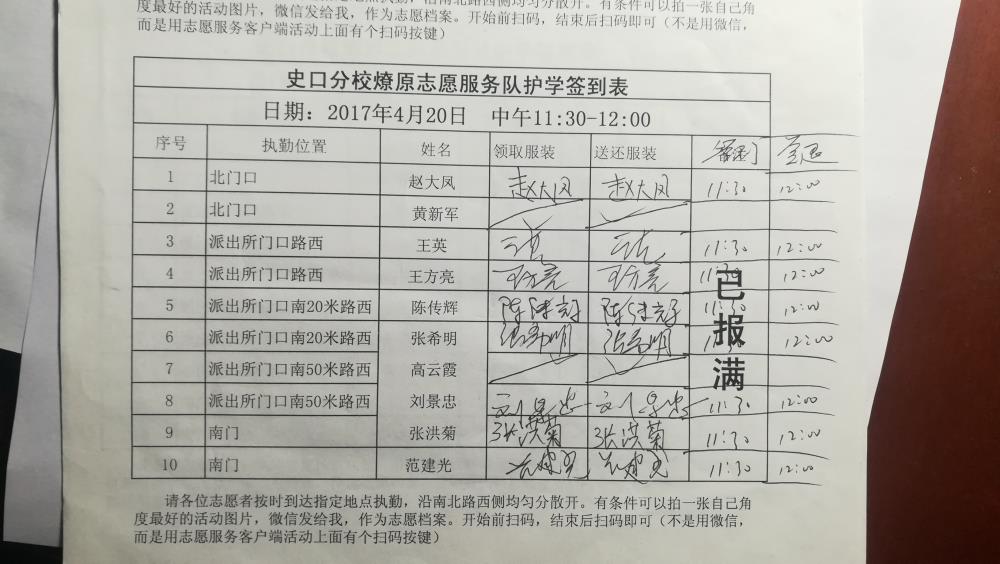 度最好的活动图片，微信发给我，作为志愿档案。开始前扫码，结束后扫码即可（不是用微信，
而是用志愿服务客户端活动上面有个扫码按键）
史口分校燎原志愿服务队护学签到表
日期：2017年4月20日 中午11:30-12:00
序号 执勤位置 姓名 领取服装 送还服装
1 北门口 赵大凤 赵大凤 赵大凤 11:30 12:00
2 北门口 黄新军
3 派出所门口路西 王英 王英 王英 11:30 12:00
4 派出所门口路西 王方亮 王方亮 王方亮 11:30 12:00
5 派出所门口南20米路西 陈传辉 陈传辉 陈传辉 11:30 12:00
6 派出所门口南20米路西 张希明 张希明 张希明 11:30 12:00
7 派出所门口南50米路西 高云霞
8 派出所门口南50米路西 刘景忠 刘景忠 刘景忠 11:30 12:00
9 南门 张洪菊 张洪菊 张洪菊 11:30 12:00
10 南门 范建光 范建光 范建光 11:30 12:00
已报满
请各位志愿者按时到达指定地点执勤，沿南北路西侧均匀分散开。有条件可以拍一张自己角
度最好的活动图片，微信发给我，作为志愿档案。开始前扫码，结束后扫码即可（不是用微信，
而是用志愿服务客户端活动上面有个扫码按键）